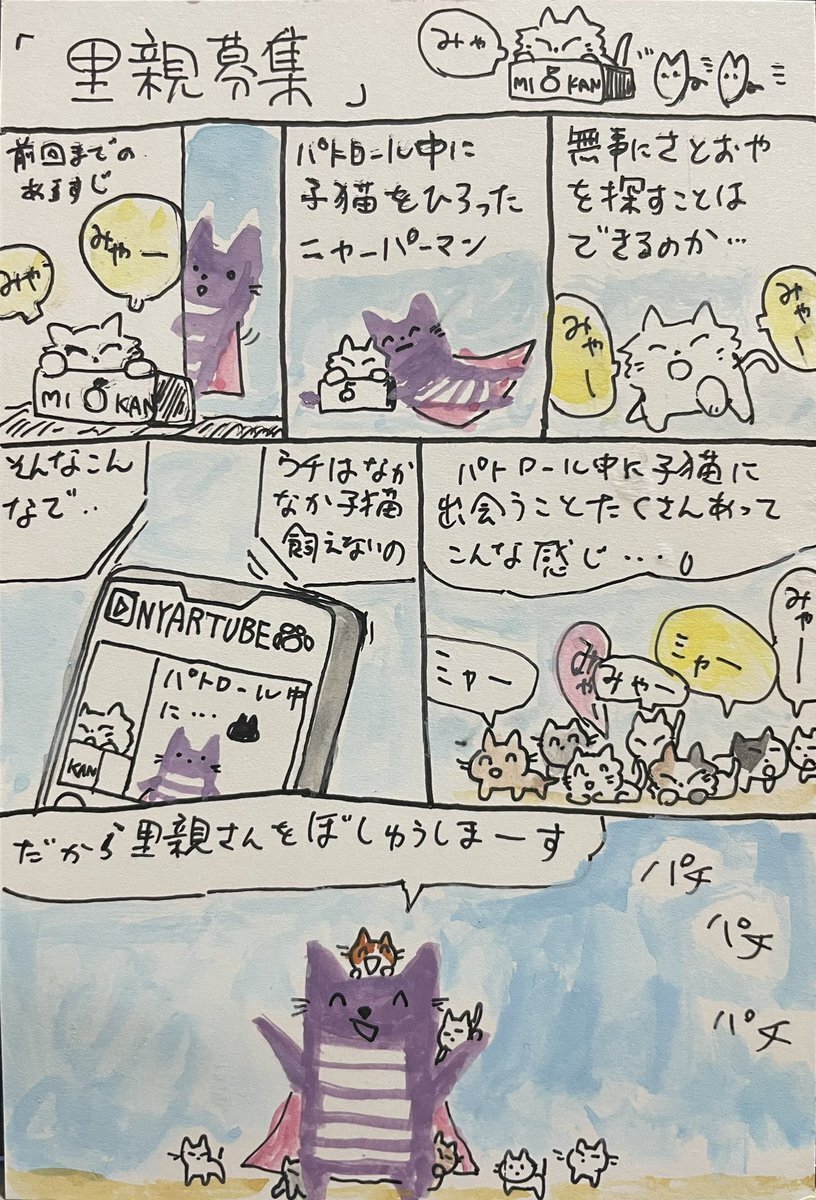 「里親募集」
みゃ
MIKAN
前回までの
あらすじ
みゃー
みゃー
MIKAN
パトロール中に
子猫をひろった
ニャーパーマン
無事にさとおや
を探すことは
できるのか…
みゃー
みゃー
そんなこん
なで‥
ウチはなか
なか子猫
飼えないの
NYARTUBE
パトロール中
に…
KAN
パトロール中に子猫に
出会うことたくさんあって
こんな感じ…。
ミャー
みゃ
みゃー
ミャー
みゃー
だから里親さんをぼしゅうしまーす
パチ
パチ
パチ